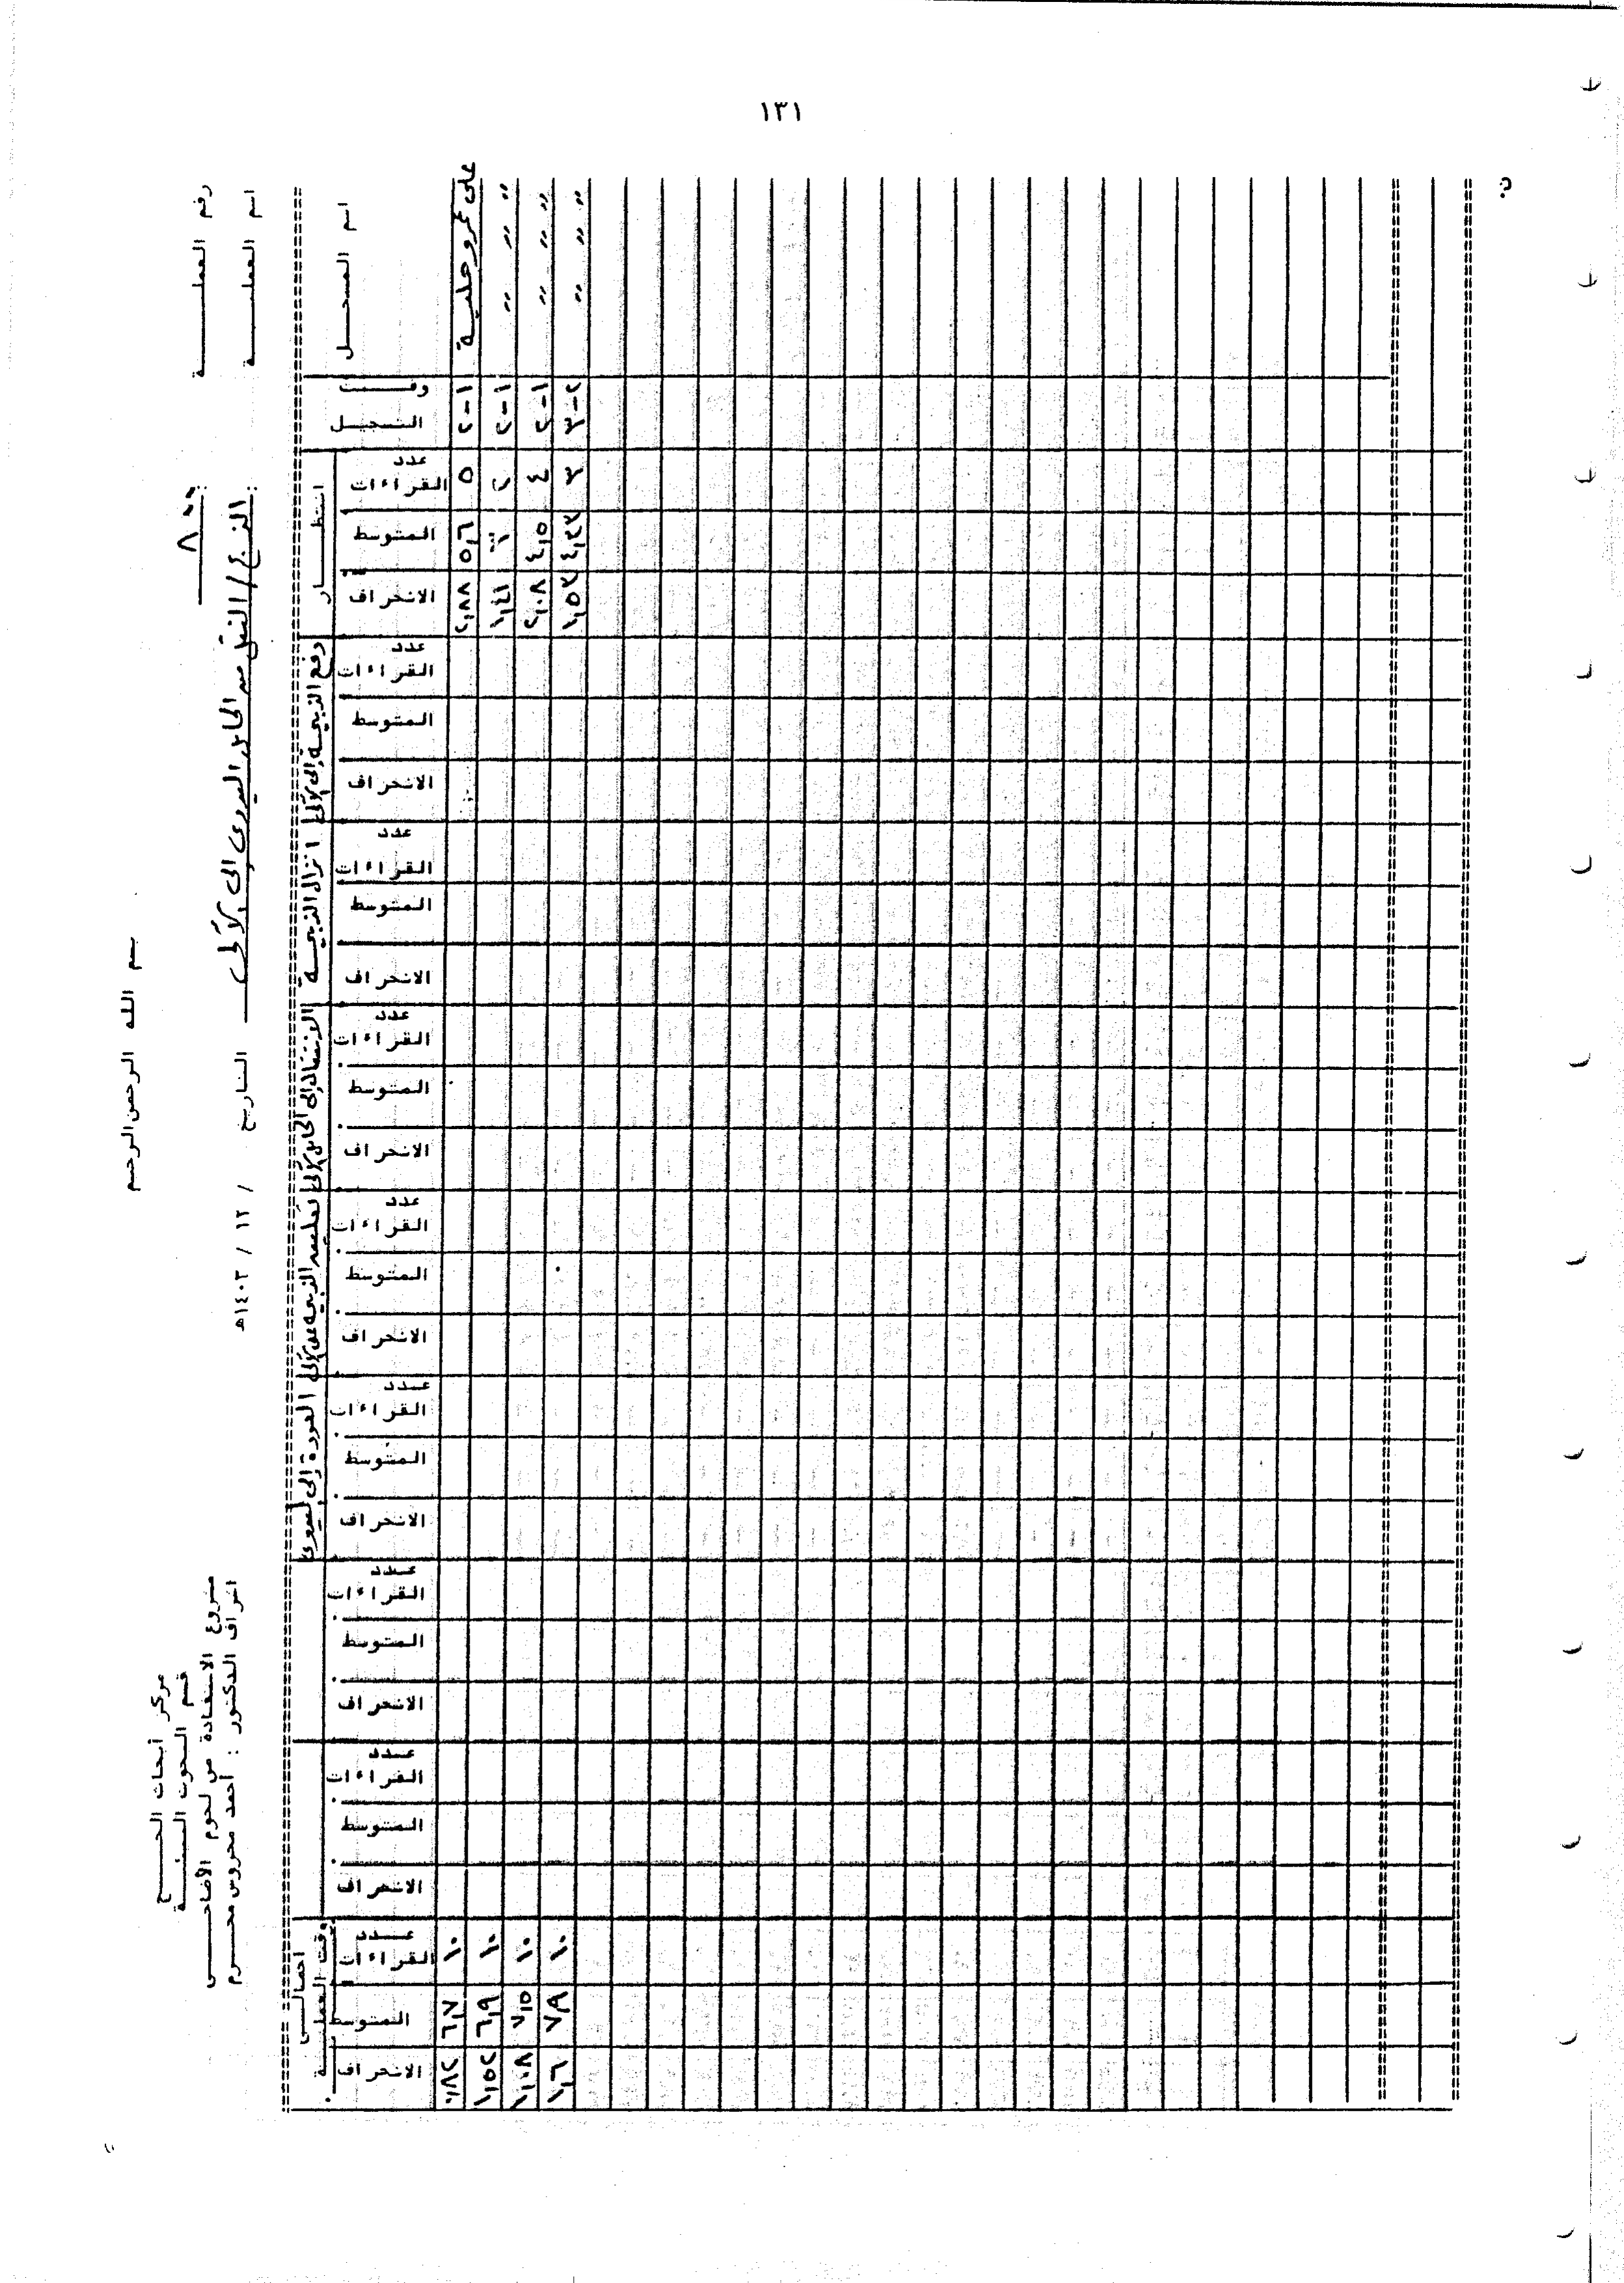 ١٣١
بسم الله الرحمن الرحيم
مركز أبحاث الحج
قسم البحوث
مشروع الاستفادة من لحوم الأضاحي
اشراف الدكتور : أحمد محروس محرم
رقم العملية : ٨
اسم العملية : الذبح / النقل من الحامل اليدوى إلى الآلى
التاريخ / ١٢ / ١٤٠٣هـ
اسم المسجل
وقت التسجيل
انتظار
دفع الذبيحة إلى الآلى
انزال الذبيحة
الانتقال إلى الحامل الآلى
تعليق الذبيحة على الآلى
العودة إلى اليدوى
اجمالى وقت العملية
عدد القراءات المتوسط الانحراف
عدد القراءات المتوسط الانحراف
عدد القراءات المتوسط الانحراف
عدد القراءات المتوسط الانحراف
عدد القراءات المتوسط الانحراف
عدد القراءات المتوسط الانحراف
عدد القراءات المتوسط الانحراف
عدد القراءات المتوسط الانحراف
عدد القراءات المتوسط الانحراف
على عمرو حلبية ١-٢ ٥ ٥,٦ ٢,٨٨ ١٠ ٦,٧ ٠,٨٢
" " " ١-٢ ٢ ١,٤١ ١٠ ٦,٩ ١,٥٢
" " " ١-٢ ٤ ٤,٥ ٢,٠٨ ١٠ ٧,٥ ١,٠٨
" " " ٢-٣ ٣ ٤,٣٣ ١,٥٣ ١٠ ٧,٩ ١,٦